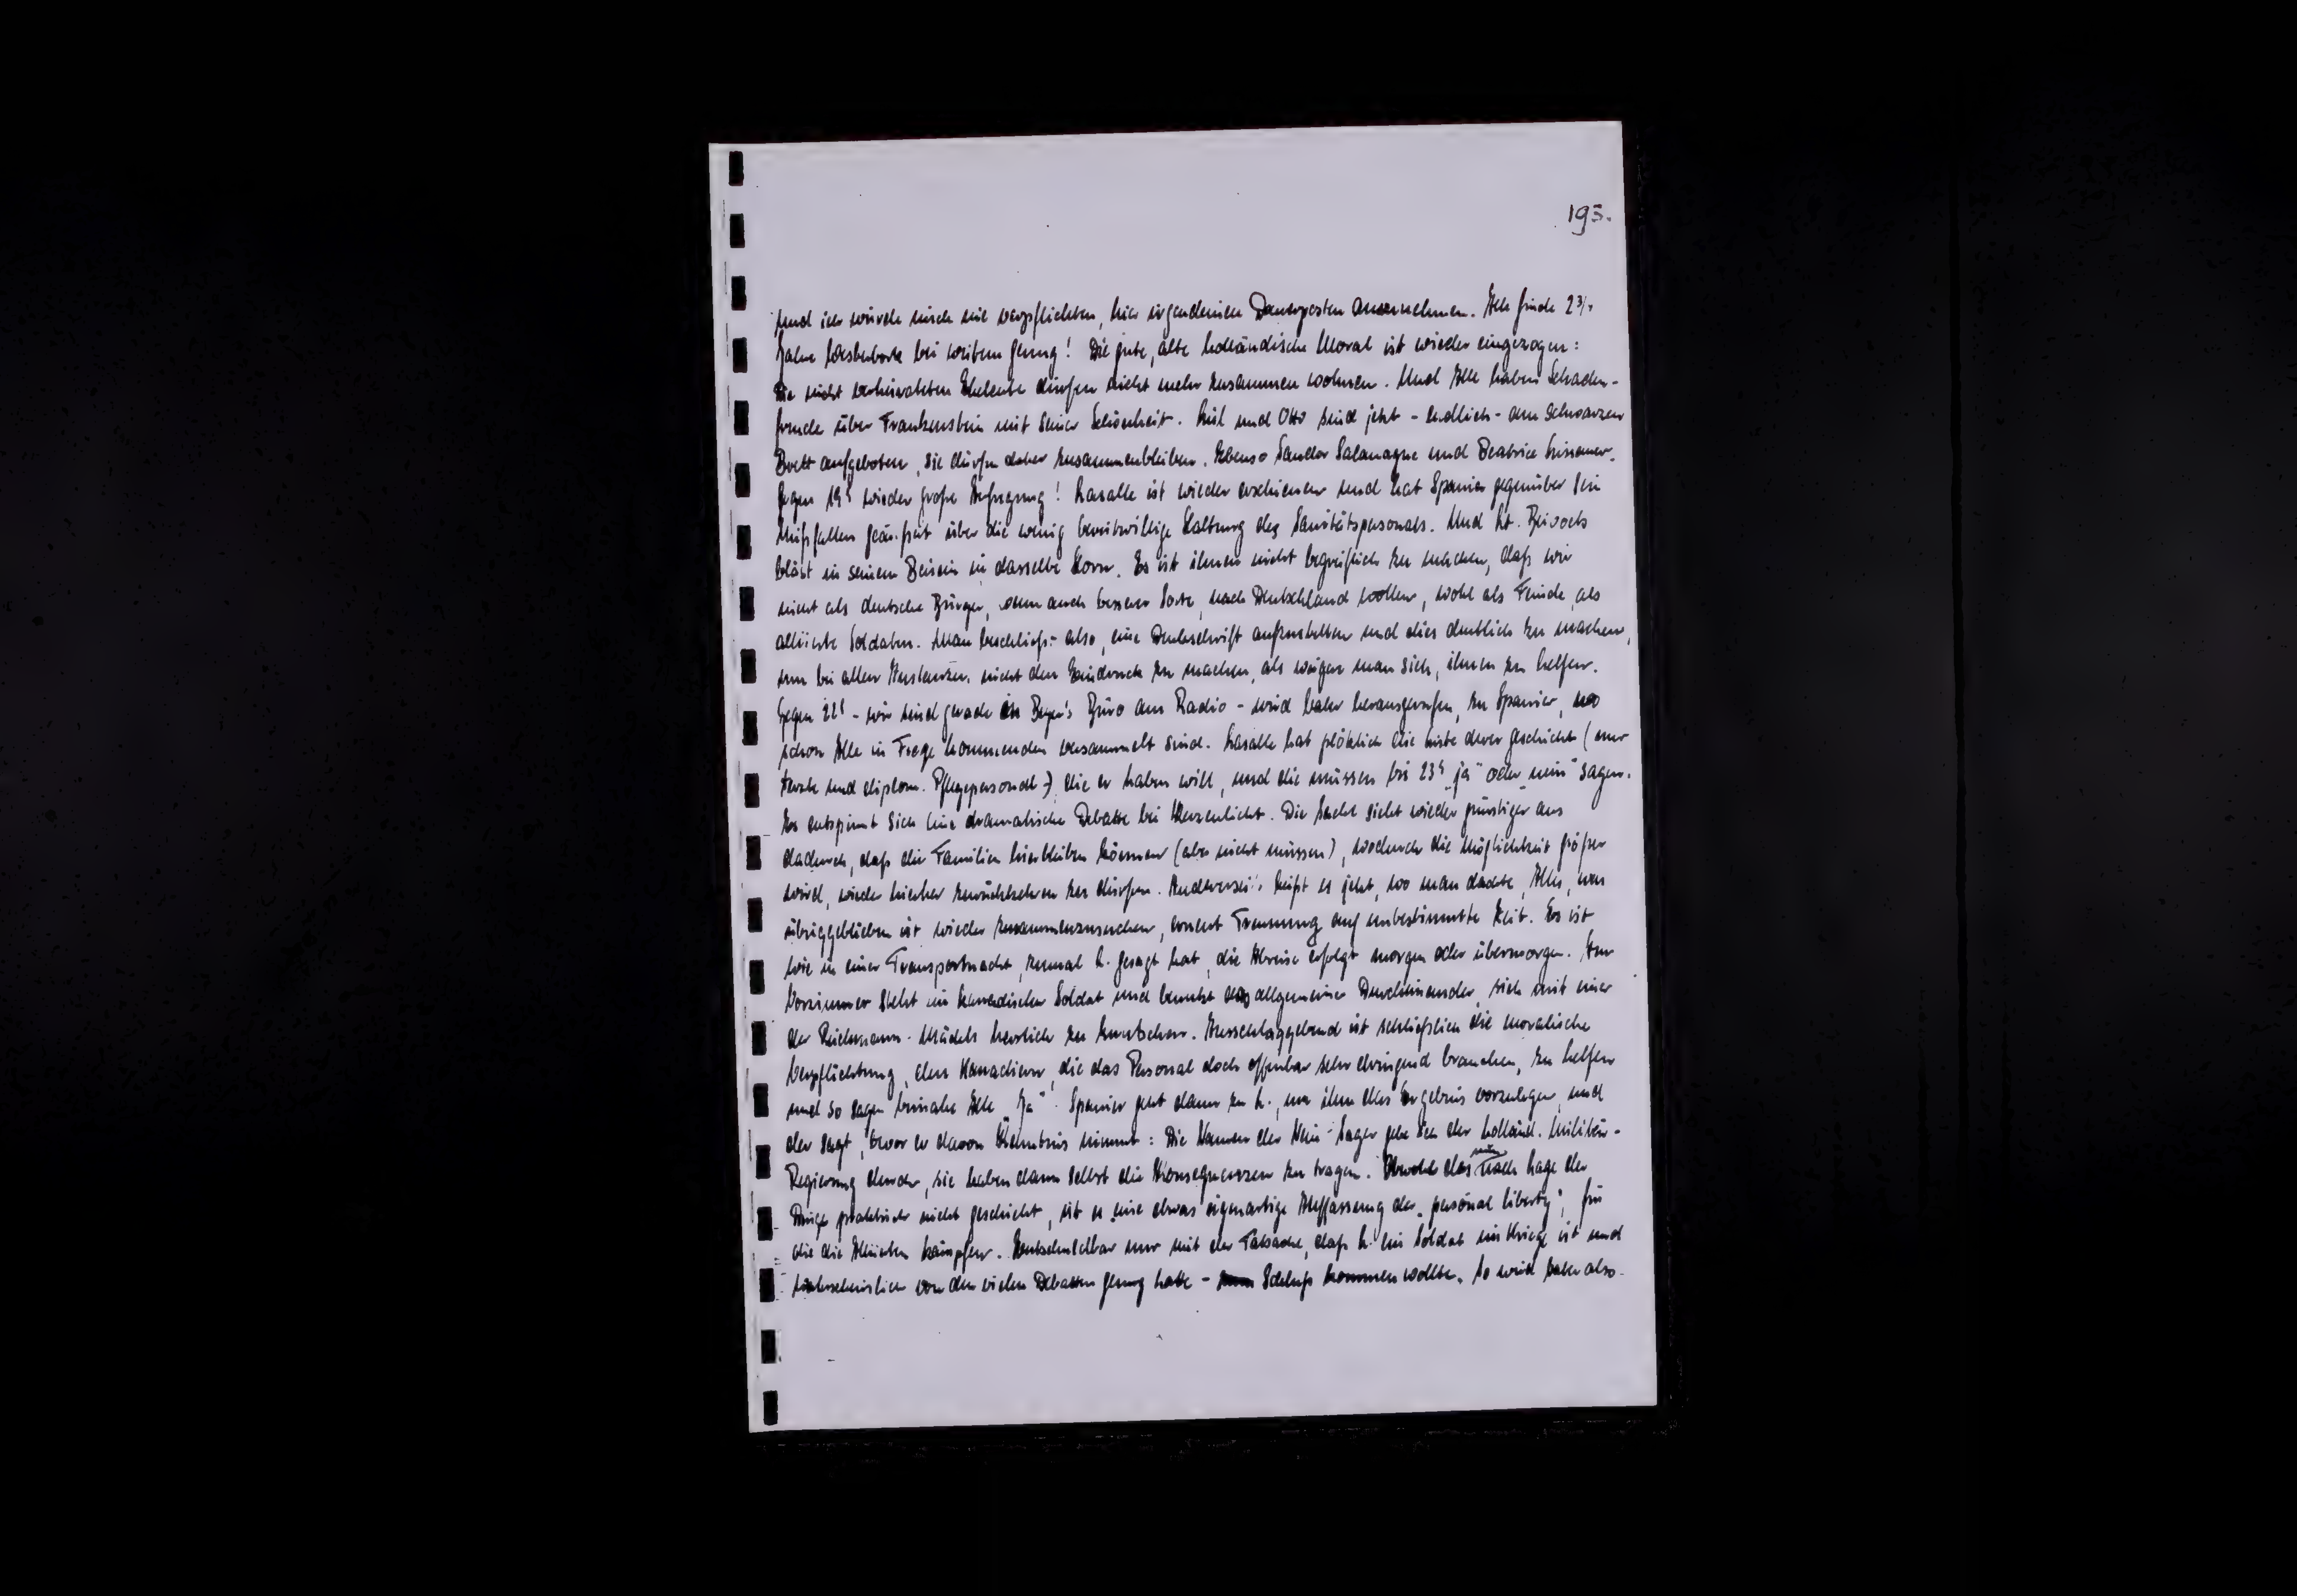 195.
und ich würde mich nie verpflichten, hier irgendeinen Dauerposten anzunehmen. Ich finde 2 3/4
Jahre Westerbork bei weitem genug! Die gute, alte holländische Moral ist wieder eingezogen:
Die nicht verheirateten Eheleute dürfen nicht mehr zusammen wohnen. Und Alle haben Schaden-
freude über Frankenstein mit seiner Schönheit. und Otto sind jetzt - endlich - am schwarzen
Brett aufgeboten, sie dürfen daher zusammenbleiben. Ebenso Sandor Salamagne und Beatrice
Gegen 19h wieder große Aufregung! Lasalle ist wieder erschienen und hat Spanier gegenüber sein
Mißfallen geäußert über die wenig bereitwillige Haltung des Sanitätspersonals. Und Lt.
bläst in seinem Beisein in dasselbe Horn. Es ist ihnen nicht begreiflich zu machen, daß wir
nicht als deutsche Bürger, wenn auch besserer Sorte, nach Deutschland wollen, wohl als Feinde, als
alliierte Soldaten. Man beschließt also, eine Denkschrift aufzustellen und dies deutlich zu machen,
um bei allen Instanzen nicht den Eindruck zu machen, als weigere man sich, ihnen zu helfen.
Gegen 22h - wir sind gerade in Beyer's Büro am Radio - wird herausgerufen, zu Spanier, wo
schon Alle in Frage kommenden versammelt sind. Lasalle hat plötzlich die Liste derer geschickt (nur
Ärzte und diplom. Pflegepersonal) die er haben will, und die müssen bis 23h "ja" oder "nein" sagen.
Es entspinnt sich eine dramatische Debatte bei Kerzenlicht. Die Sache sieht wieder günstiger aus
dadurch, daß die Familien hierbleiben können (aber nicht müssen), wodurch die Möglichkeit größer
wird, wieder hierher zurückkehren zu dürfen. Andererseits heißt es jetzt, wo man dachte, Alles, was
übriggeblieben ist wieder zusammenzusuchen, erneut Trennung auf unbestimmte Zeit. Es ist
wie in einer Transportnacht, zumal L. gesagt hat, die Abreise erfolgt morgen oder übermorgen. Im
Vorzimmer steht ein kanadischer Soldat und benutzt das allgemeine Durcheinander, sich mit einer
der Mädels herzlich zu knutschen. Ausschlaggebend ist schließlich die moralische
Verpflichtung, den Kanadiern, die das Personal doch offenbar sehr dringend brauchen, zu helfen
und so sagen beinahe Alle "Ja". Spanier geht dann zu L., um ihm das Ergebnis vorzulegen, und
der sagt, bevor er davon Kenntnis nimmt: Die Namen der Nein-Sager gebe ich der holländ. Militär-
Regierung durch, sie haben dann selbst die Konsequenzen zu tragen. Obwohl das nach Lage der
Dinge praktisch nicht geschieht, ist es eine etwas eigenartige Auffassung der "personal liberty", für
die die Alliierten kämpfen. Entschuldbar nur mit der Tatsache, daß L. ein Soldat im Kriege ist und
wahrscheinlich von den vielen Debatten genug hatte - Schluß kommen wollte. So wird also